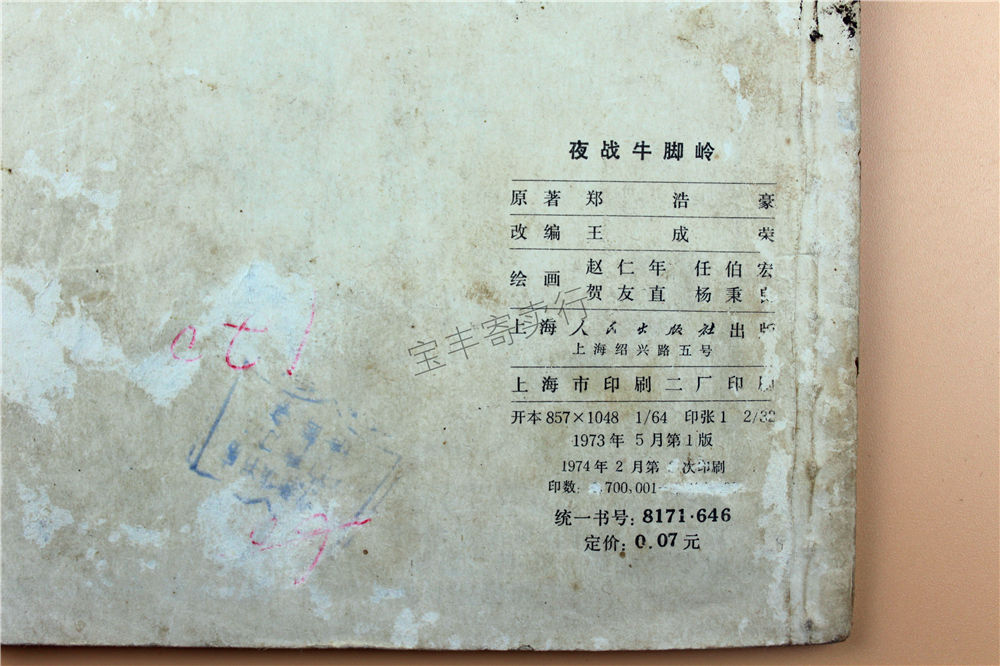 夜战牛脚岭
原著 郑浩豪
改编 王成荣
绘画 赵仁年 任伯宏
贺友直 杨秉
上海人民出版社出版
上海绍兴路五号
上海市印刷二厂印刷
开本 857×1048 1/64 印张 1 2/32
1973年5月第1版
1974年2月第 次印刷
印数: ,700,001—
统一书号: 8171·646
定价: 0.07元
宝丰寄卖行